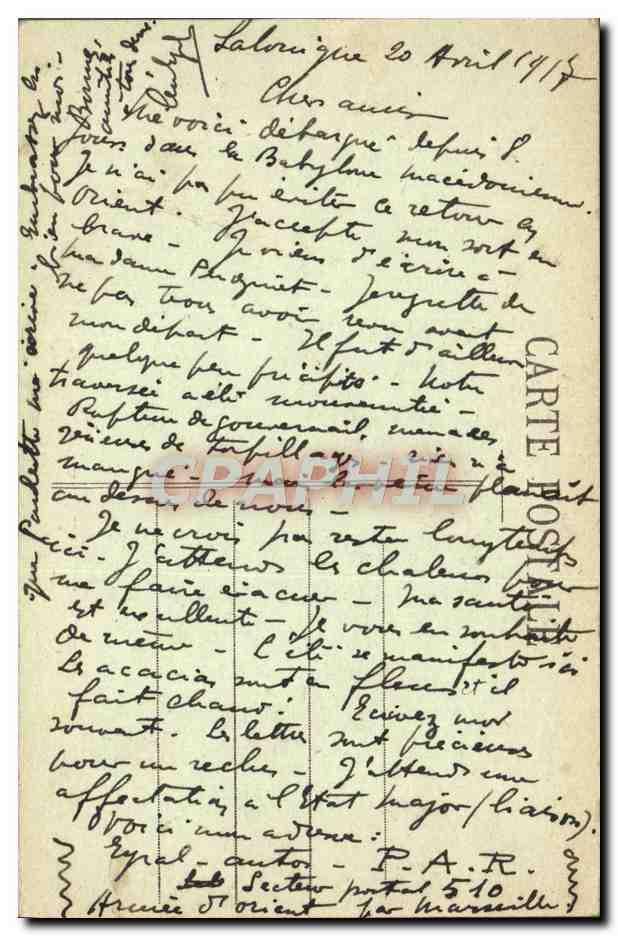 Salonique 20 Avril 1917
Chers amis
Me voici débarqué depuis 8
jours dans la Babylone macédonienne.
Je n'ai pas pu éviter ce retour en
Orient. J'accepte mon sort en
brave - Je viens d'écrire à
madame - Je regrette de
ne pas vous avoir revu avant
mon départ - Il fut d'ailleurs
quelque peu précipité - Notre
traversée a été mouvementée -
Rupture de gouvernail, menaces
sérieuses de torpillage rien n'a
manqué - mais planait
au dessus de nous -
Je ne crois pas rester longtemps
ici. J'attends les chaleurs pour
me faire évacuer - Ma santé
est excellente - Je vous en souhaite
de même - L'été se manifeste ici
les acacias sont en fleurs et il
fait chaud! Ecrivez moi
souvent. Les lettres sont précieuses
pour un - J'attends une
affectation à l'Etat Major (liaison).
Voici mon adresse:
Eyral - autos - P.A.R.
Secteur postal 510
Armée d'Orient par Marseille.
que Paulette m'a écrit. Embrassez la
bien pour moi -
Bonne
amitié
à tous deux
CARTE POSTALE
CPAPHIL